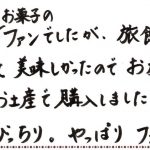 お菓子の
ファンでしたが、旅館
美味しかったのでお
お土産で購入しました
っちり。やっぱりフ